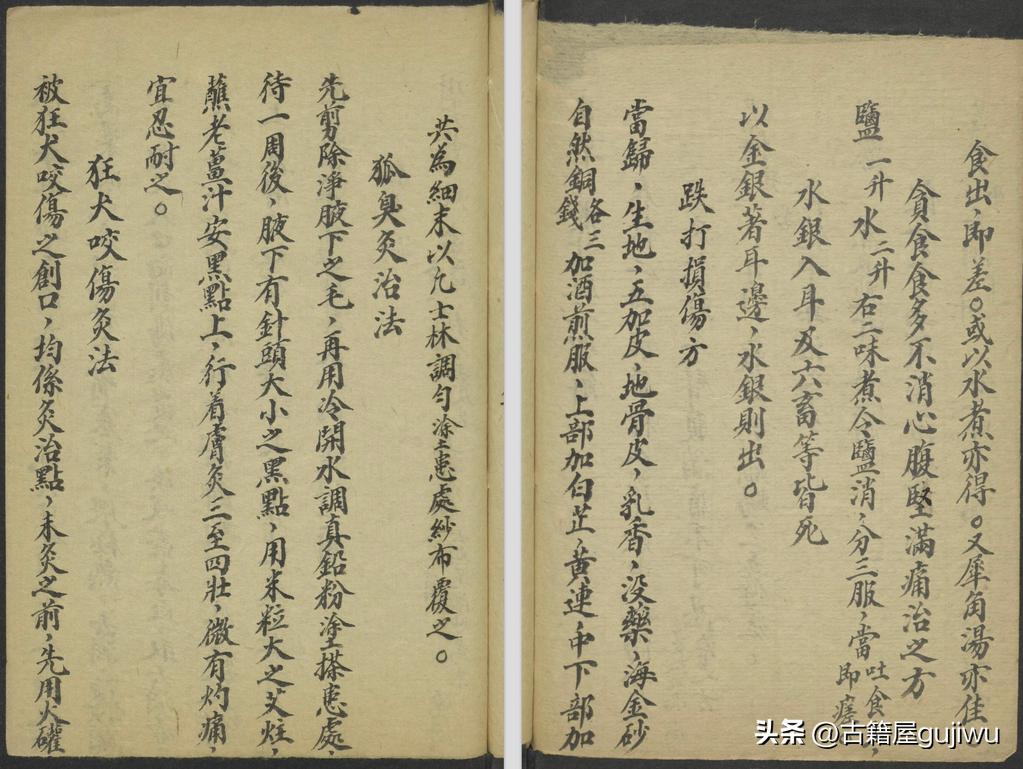 食出，即差。或以水煮亦得。又犀角湯亦佳。
貪食食多不消心腹堅滿痛治之方
鹽一升水二升右二味煮令鹽消，分三服，當吐食，即瘥
水銀入耳及六畜等皆死
以金銀著耳邊，水銀則出。
跌打損傷方
當歸，生地，五加皮，地骨皮，乳香，没藥，海金砂
自然銅各三錢加酒煎服，上部加白芷，黄連，中下部加
共為細末以凡士林調勻涂患處紗布覆之。
狐臭灸治法
先剪除淨腋下之毛，再用冷開水調真鉛粉塗搽患處，
待一周後，腋下有針頭大小之黑點，用米粒大之艾炷，
蘸老薑汁安黑點上，行着膚灸三至四壯，微有灼痛，
宜忍耐之。
狂犬咬傷灸法
被狂犬咬傷之創口，均係灸治點，未灸之前，先用火罐
头条 @古籍屋gujiwu